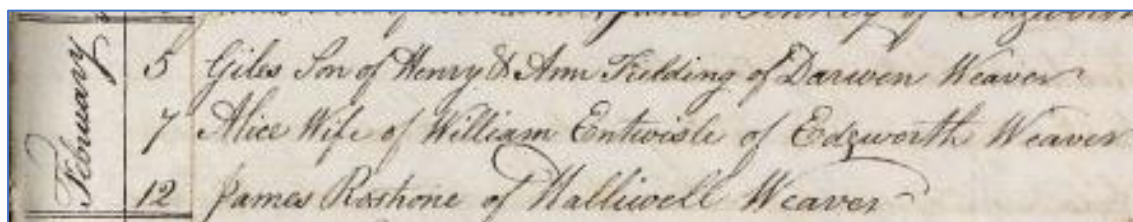 of Edgworth
February
5 Giles Son of Henry & Ann Fielding of Darwen Weaver
7 Alice Wife of William Entwisle of Edgworth Weaver
12 James Rosthone of Halliwell Weaver